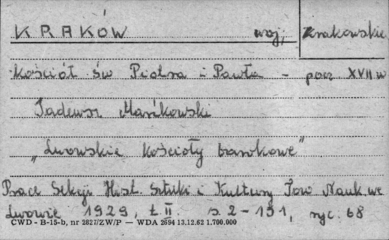 KRAKÓW woj. krakowskie
Kościół św Piotra i Pawła - pocz XVII w
Tadeusz Mańkowski
"Lwowskie kościoły barokowe"
Prace Sekcji Hist. Sztuki i Kultury Tow Nauk. we
Lwowie 1929, t. II s. 2-151, ryc. 68
CWD - B-15-b, nr 2827/ZW/P — WDA 2694 13.12.62 1.700.000